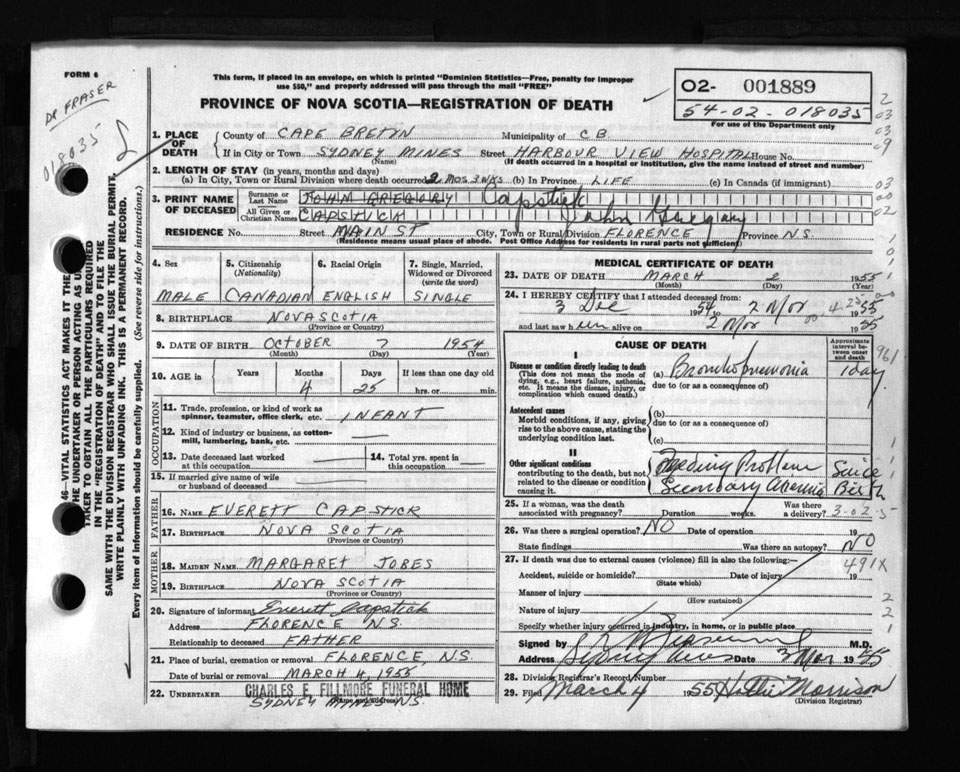 FORM 6
DR FRASER
018035
This form, if placed in an envelope, on which is printed "Dominion Statistics—Free, penalty for improper
use $50," and properly addressed will pass through the mail "FREE"
PROVINCE OF NOVA SCOTIA—REGISTRATION OF DEATH
02- 001889
54-02-018035
For use of the Department only
1. PLACE OF DEATH
County of CAPE BRETON Municipality of C B
If in City or Town SYDNEY MINES Street HARBOUR VIEW HOSPITAL House No.
(Name) (If death occurred in a hospital or institution, give the name instead of street and number)
2. LENGTH OF STAY (in years, months and days)
(a) In City, Town or Rural Division where death occurred 2 MOS 3 WKS (b) In Province LIFE (c) In Canada (if immigrant)
3. PRINT NAME OF DECEASED
Surname or Last Name JOHN GREGORY Capstick
All Given or Christian Names CAPSTICK John Gregory
RESIDENCE No. Street MAIN ST City, Town or Rural Division FLORENCE Province N.S.
(Residence means usual place of abode. Post Office Address for residents in rural parts not sufficient)
4. Sex MALE
5. Citizenship (Nationality) CANADIAN
6. Racial Origin ENGLISH
7. Single, Married, Widowed or Divorced (write the word) SINGLE
8. BIRTHPLACE NOVA SCOTIA
(Province or Country)
9. DATE OF BIRTH OCTOBER 7 1954
(Month) (Day) (Year)
10. AGE in Years Months Days If less than one day old
4 25 hrs. or min.
OCCUPATION
11. Trade, profession, or kind of work as spinner, teamster, office clerk, etc. INFANT
12. Kind of industry or business, as cotton-mill, lumbering, bank, etc.
13. Date deceased last worked at this occupation
14. Total yrs. spent in this occupation
15. If married give name of wife or husband of deceased
FATHER
16. NAME EVERETT CAPSTICK
17. BIRTHPLACE NOVA SCOTIA
(Province or Country)
MOTHER
18. MAIDEN NAME MARGARET JOBES
19. BIRTHPLACE NOVA SCOTIA
(Province or Country)
20. Signature of informant Everett Capstick
Address FLORENCE N.S.
Relationship to deceased FATHER
21. Place of burial, cremation or removal FLORENCE, N.S.
Date of burial or removal MARCH 4, 1955
22. UNDERTAKER CHARLES E. FILLMORE FUNERAL HOME
(Name and address)
SYDNEY MINES N.S.
MEDICAL CERTIFICATE OF DEATH
23. DATE OF DEATH MARCH 2 1955
(Month) (Day) (Year)
24. I HEREBY CERTIFY that I attended deceased from
3 Dec 1954 to 2 Mar 1955
and last saw him alive on 2 Mar 1955
CAUSE OF DEATH
Approximate interval between onset and death
I
Disease or condition directly leading to death
(This does not mean the mode of dying, e.g., heart failure, asthenia, etc. It means the disease, injury, or complication which caused death.)
(a) Bronchopneumonia 1 day
due to (or as a consequence of)
Antecedent causes
Morbid conditions, if any, giving rise to the above cause, stating the underlying condition last.
(b)
due to (or as a consequence of)
(c)
II
Other significant conditions
contributing to the death, but not related to the disease or condition causing it.
Feeding Problem Since
Secondary Anemia Birth
25. If a woman, was the death associated with pregnancy? Duration weeks. Was there a delivery?
26. Was there a surgical operation? NO Date of operation 19
State findings Was there an autopsy? NO
27. If death was due to external causes (violence) fill in also the following:—
491X
Accident, suicide or homicide? Date of injury 19
(State which)
Manner of injury
(How sustained)
Nature of injury
Specify whether injury occurred in industry, in home, or in public place
Signed by M.D.
Address Sydney Mines Date 3 Mar 1955
28. Division Registrar's Record Number
29. Filed March 4 1955 Hattie Morrison
(Division Registrar)
SAME WITH THE DIVISION REGISTRAR WHO SHALL ISSUE THE BURIAL PERMIT.
WRITE PLAINLY WITH UNFADING INK. THIS IS A PERMANENT RECORD.
Every item of information should be carefully supplied. (See reverse side for instructions.)